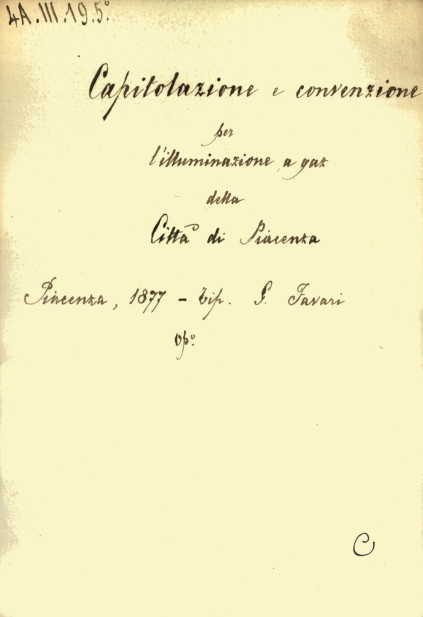 4A.III.19.5°
Capitolazione e convenzione
per
l'illuminazione a gaz
della
Città di Piacenza
Piacenza, 1877 - Tip. G. Favari
op°
C